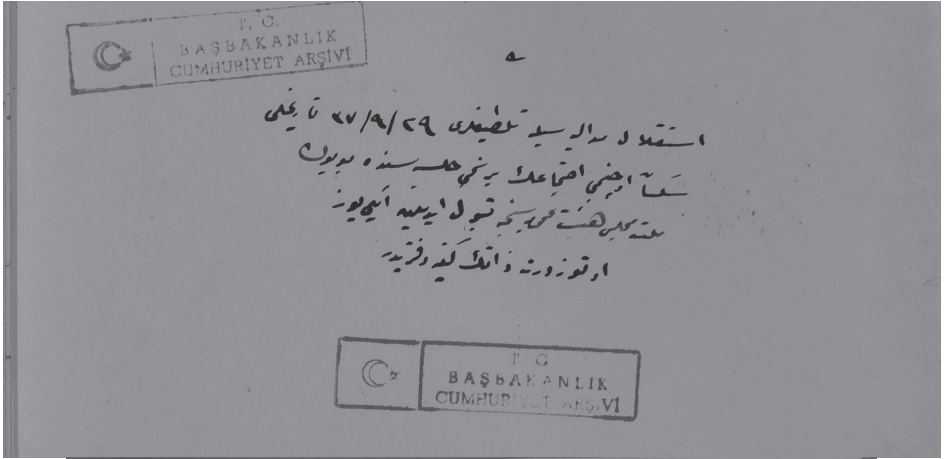 T. C.
BAŞBAKANLIK
CUMHURİYET ARŞİVİ
استقلال مدالیه سیله تلطیفلری ۳۷/۹/۲۹ تاریخلی
اوچنجی اجتماعك برنجی جلسه سنده بویوك
ملت مجلسی هیئت عمومیه سنجه قبول ایدیلن ایکییوز
اوتوز درت ذاتك کنیه دفتریدر
T C
BAŞBAKANLIK
CUMHURİYET ARŞİVİ